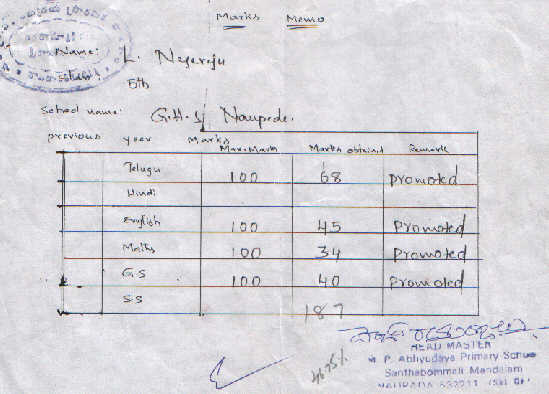 Marks Memo
Name: L. Nagaraju
5th
School name: G.H.S Naupada.
previous year Marks
Max.Mark Marks obtained Remark
Telugu 100 68 promoted
Hindi
English 100 45 Promoted
Maths 100 34 Promoted
G.S 100 40 Promoted
S.S
187
46.75%
HEAD MASTER
M. P. Abhyudaya Primary School
Santhabommali Mandalam
NAUPADA 532211